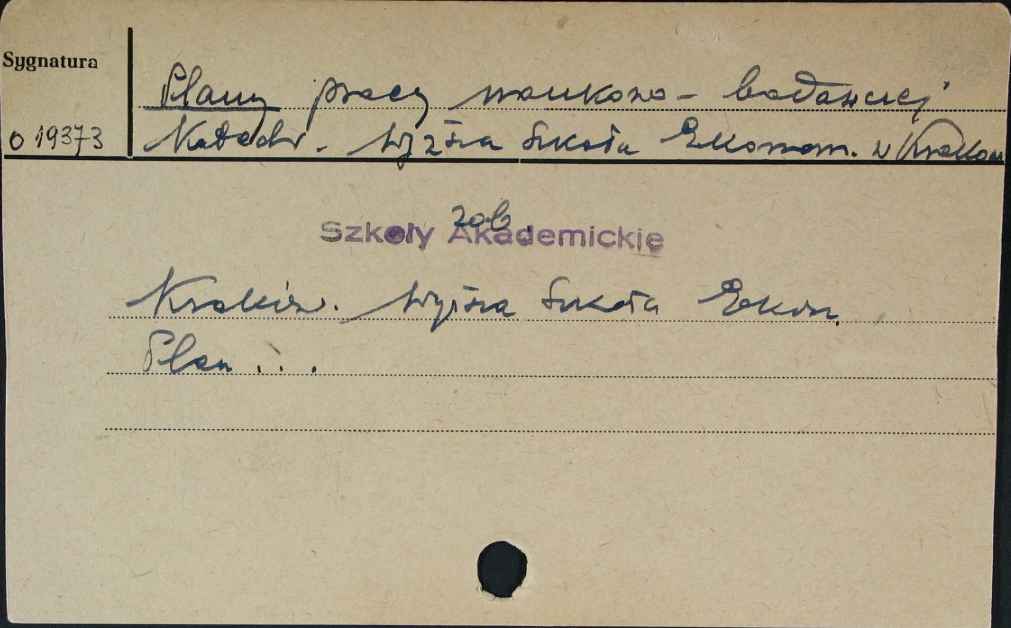 Sygnatura
Plany pracy naukowo-badawczej
0 19373
Katedr. Wyższa Szkoła Ekonom. w Krakow
zob.
Szkoły Akademickie
Kraków. Wyższa Szkoła Ekon.
Plan ...